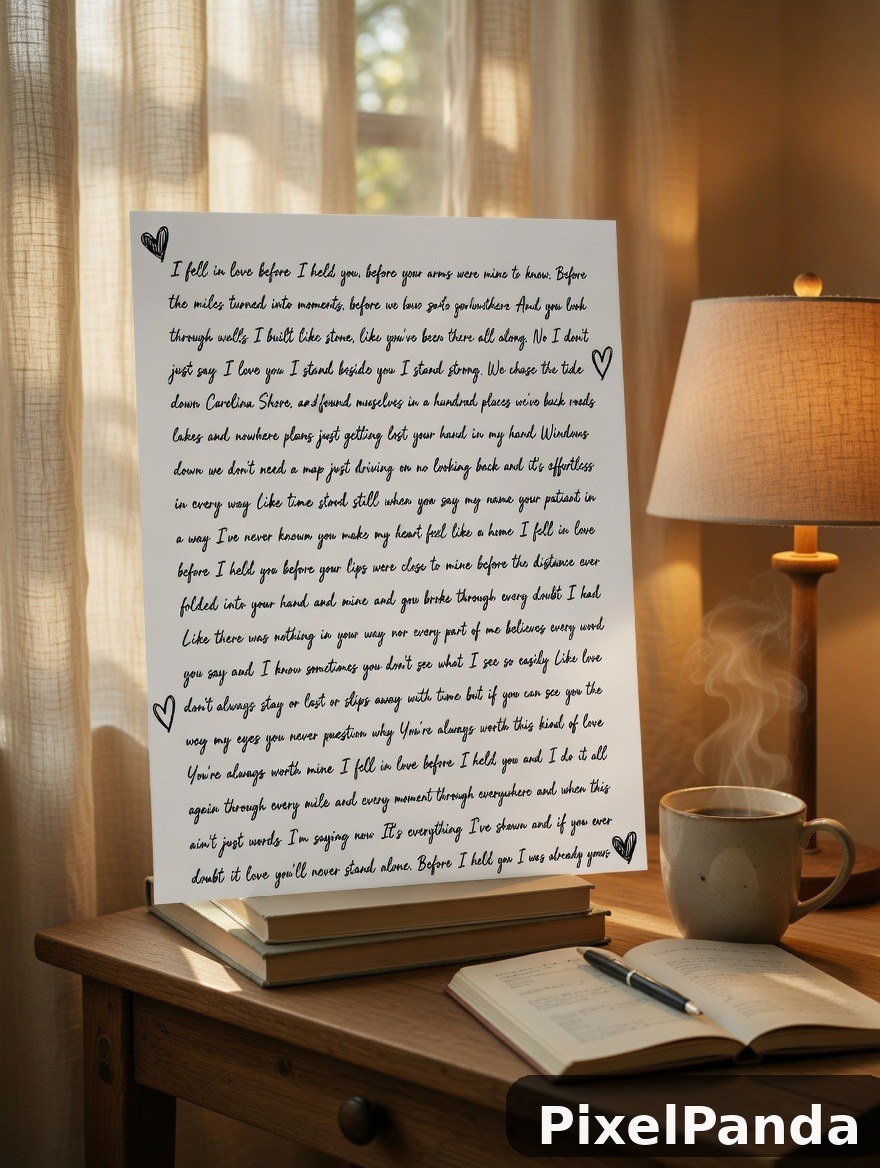 I fell in love before I held you, before your arms were mine to know. Before
the miles turned into moments, before we And you look
through walls I built like stone, like you've been there all along. No I don't
just say I love you I stand beside you I stand strong. We chase the tide
down Carolina Shore, and found ourselves in a hundred places we've back roads
lakes and nowhere plans just getting lost your hand in my hand Windows
down we don't need a map just driving on no looking back and it's effortless
in every way like time stood still when you say my name your patient in
a way I've never known you make my heart feel like a home I fell in love
before I held you before your lips were close to mine before the distance ever
folded into your hand and mine and you broke through every doubt I had
Like there was nothing in your way nor every part of me believes every word
you say and I know sometimes you don't see what I see so easily Like love
don't always stay or last or slips away with time but if you can see you the
way my eyes you never question why You're always worth this kind of love
You're always worth mine I fell in love before I held you and I do it all
again through every mile and every moment through everywhere and when this
ain't just words I'm saying now It's everything I've shown and if you ever
doubt it love you'll never stand alone. Before I held you I was already yours
PixelPanda